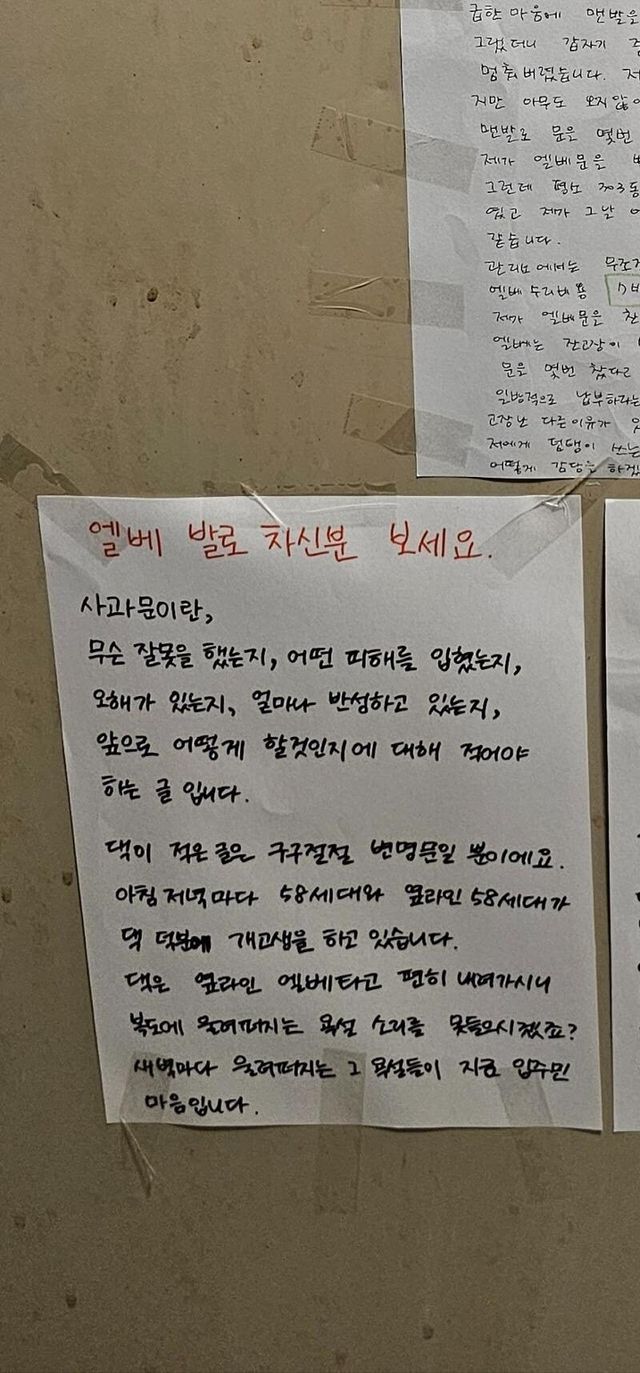 급한 마음에 맨발을
그랬더니 갑자기
멈춰버렸습니다. 제
지만 아무도 오지않아
맨발로 문을 몇번
제가 엘베문을
그런데 평소 303동
였고 제가 그날
같습니다.
관리소에서는 무조건
엘베 수리비용
제가 엘베문을 찬
엘베는 잔고장이
문을 몇번 찼다고
일방적으로 납부하라는
고장난 다른이유가
저에게 덤탱이 쓰는
어떻게 감당을 하겠
엘베 발로 차신분 보세요.
사과문이란,
무슨 잘못을 했는지, 어떤 피해를 입혔는지,
오해가 있는지, 얼마나 반성하고 있는지,
앞으로 어떻게 할것인지에 대해 적어야
하는 글 입니다.
댁이 적은 글은 구구절절 변명문일 뿐이에요.
아침저녁마다 58세대와 옆라인 58세대가
댁 덕분에 개고생을 하고 있습니다.
댁은 옆라인 엘베타고 편히 내려가시니
복도에 울려퍼지는 욕설 소리를 못들으시겠죠?
새벽마다 울려퍼지는 그 욕설들이 지금 입주민
마음입니다.